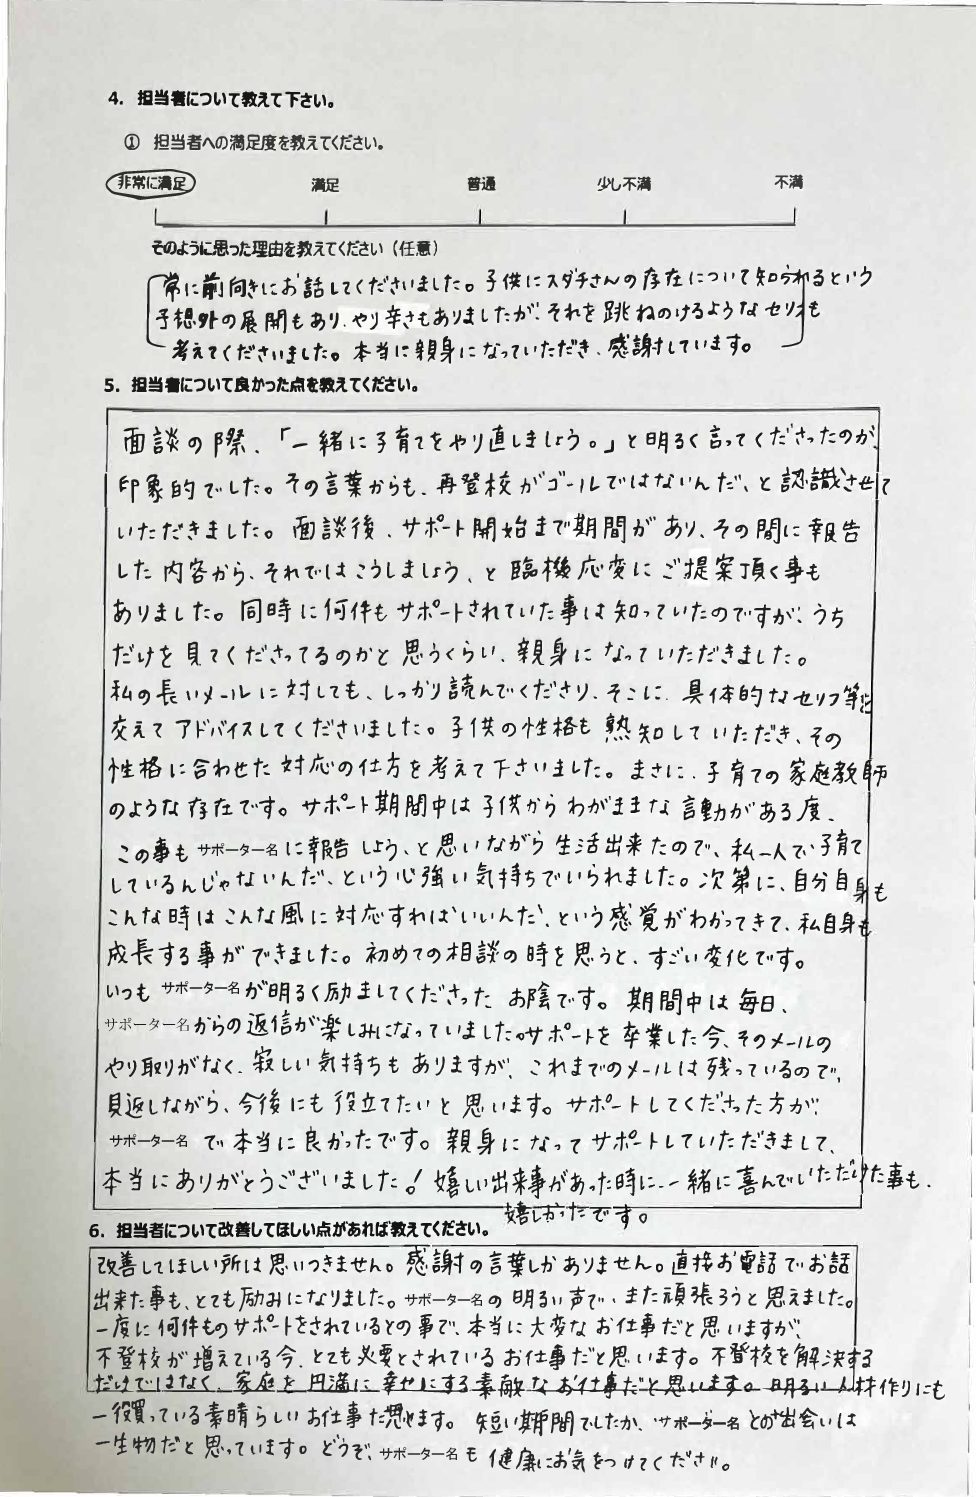 4. 担当者について教えて下さい。
① 担当者への満足度を教えてください。
非常に満足 満足 普通 少し不満 不満
そのように思った理由を教えてください（任意）
常に前向きにお話してくださいました。子供にスダチさんの存在について知られるという
予想外の展開もあり、やり辛さもありましたが、それを跳ねのけるようなセリフも
考えてくださいました。本当に親身になっていただき、感謝しています。
5. 担当者について良かった点を教えてください。
面談の際、「一緒に子育てをやり直しましょう。」と明るく言ってくださったのが、
印象的でした。その言葉からも、再登校がゴールではないんだ、と認識させて
いただきました。面談後、サポート開始まで期間があり、その間に報告
した内容から、それではこうしましょう、と臨機応変にご提案頂く事も
ありました。同時に何件もサポートされていた事は知っていたのですが、うち
だけを見てくださってるのかと思うくらい、親身になっていただきました。
私の長いメールに対しても、しっかり読んでくださり、そこに、具体的なセリフ等を
交えてアドバイスしてくださいました。子供の性格も熟知していただき、その
性格に合わせた対応の仕方を考えて下さいました。まさに、子育ての家庭教師
のような存在です。サポート期間中は子供からわがままな言動がある度、
この事もサポーター名に報告しよう、と思いながら生活出来たので、私一人で子育て
しているんじゃないんだ、という心強い気持ちでいられました。次第に、自分自身も
こんな時はこんな風に対応すればいいんだ、という感覚がわかってきて、私自身も
成長する事ができました。初めての相談の時を思うと、すごい変化です。
いつもサポーター名が明るく励ましてくださったお陰です。期間中は毎日、
サポーター名からの返信が楽しみになっていました。サポートを卒業した今、そのメールの
やり取りがなく、寂しい気持ちもありますが、これまでのメールは残っているので、
見返しながら、今後にも役立てたいと思います。サポートしてくださった方が、
サポーター名で本当に良かったです。親身になってサポートしていただきまして、
本当にありがとうございました！嬉しい出来事があった時に、一緒に喜んでいただけた事も、
嬉しかったです。
6. 担当者について改善してほしい点があれば教えてください。
改善してほしい所は思いつきません。感謝の言葉しかありません。直接お電話でお話
出来た事も、とても励みになりました。サポーター名の明るい声で、また頑張ろうと思えました。
一度に何件ものサポートをされているとの事で、本当に大変なお仕事だと思いますが、
不登校が増えている今、とても必要とされているお仕事だと思います。不登校を解決する
だけではなく、家庭を円満に幸せにする素敵なお仕事だと思います。明るい人材作りにも
一役買っている素晴らしいお仕事だ思います。短い期間でしたが、サポーター名との出会いは
一生物だと思っています。どうぞ、サポーター名も健康にお気をつけてください。